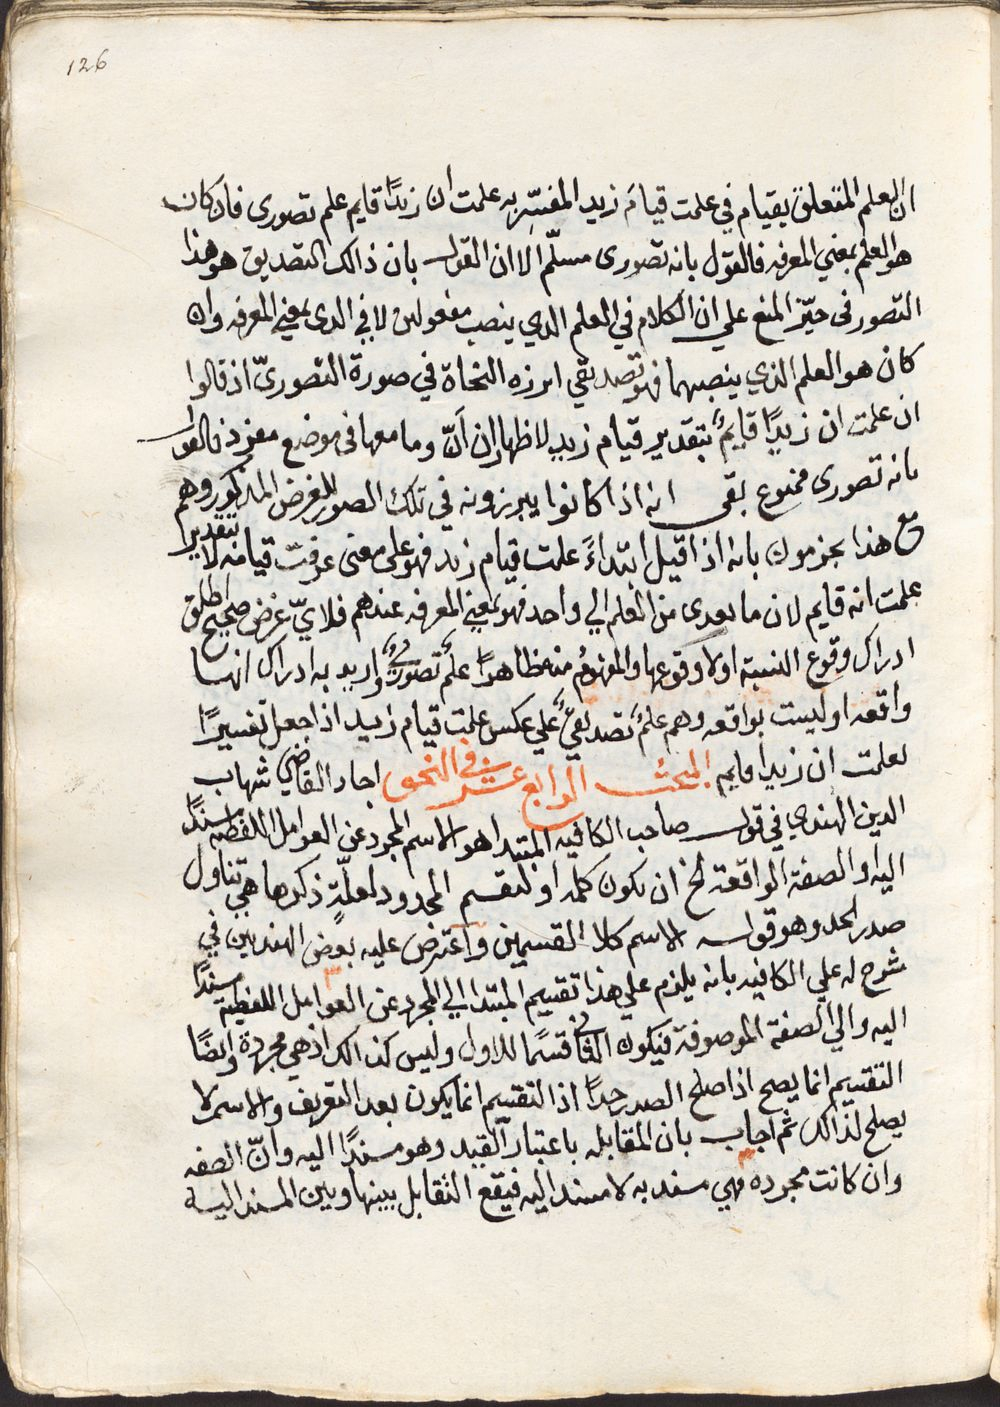 126
ان العلم المتعلق بقيام في علمت قيامَ زيد المفسّرِ به علمت ان زيدًا قايم علم تصورى فان كان
هو العلم بمعني المعرفه فالقول بانه تصورى مسلّم الا ان القول بان ذالك التصديق هو هذا
التصور فى حيّز المنع علي ان الكلام في العلم الذي ينصب مفعولين لا في الذى بمعني المعرفه وان
كان هو العلم الذي ينصبهما فهو تصديقي ابرزه النحاة في صورة التصوريّ اذ قالوا
ان علمت ان زيدًا قايمٌ بتقدير قيام زيدٍ لاظهار ان أنّ وما معها في موضع مفرد فالقول
بانه تصورى ممنوع بقى انه اذا كانوا يبرزونه في تلك الصور للغرض المذكور وهم
مع هذا يجزمون بانه اذا قيل ابتداءً علمت قيام زيد فهو على معنى عرفت قيامه لا بتقدير
علمت انه قايم لان ما تعدى من العلم الي واحد فهو بمعني المعرفه عندهم فلايّ غرض صحيح اطلق
ادراك وقوع النسبة او لا وقوعها والمفهوم منه ظاهرًا علمٌ تصوريٌّ واريد به ادراك انها
واقعه او ليست بواقعه وهم علمٌ تصديقيٌّ علي عكس علمت قيام زيد اذا جعل تفسيرًا
لعلمت ان زيدا قايم المبحث الرابع عشر في النحو اجاد القاضي شهاب
الدين الهندي في قول صاحب الكافيه المبتدا هو الاسم المجرد عن العوامل اللفظيه مسندًا
اليه او الصفة الواقعة لخ ان تكون كلمه او لتقسم المحدود لعلّةٍ ذكرها هي تناول
صدر الحد وهو قوله الاسم كلا القسمين واعترض عليه بعض الهنديين في
شرح له علي الكافيه بانه يلزم علي هذا تقسيم المبتدا الي المجرد عن العوامل اللفظية مسندًا
اليه والي الصفة الموصوفة فيكون الثاني قسمًا للاول وليس كذالك اذ هي مجردة وايضًا
التقسيم انما يصح اذا صلح الصدر حدًا اذ التقسيم انما يكون بعد التعريف والاسم لا
يصلح لذالك ثم اجاب بان المقابله باعتبار القيد وهو مسندًا اليه وانّ الصفه
وان كانت مجرده فهي مسند به لا مسند اليه فيقع التقابل بينها وبين المسند اليه